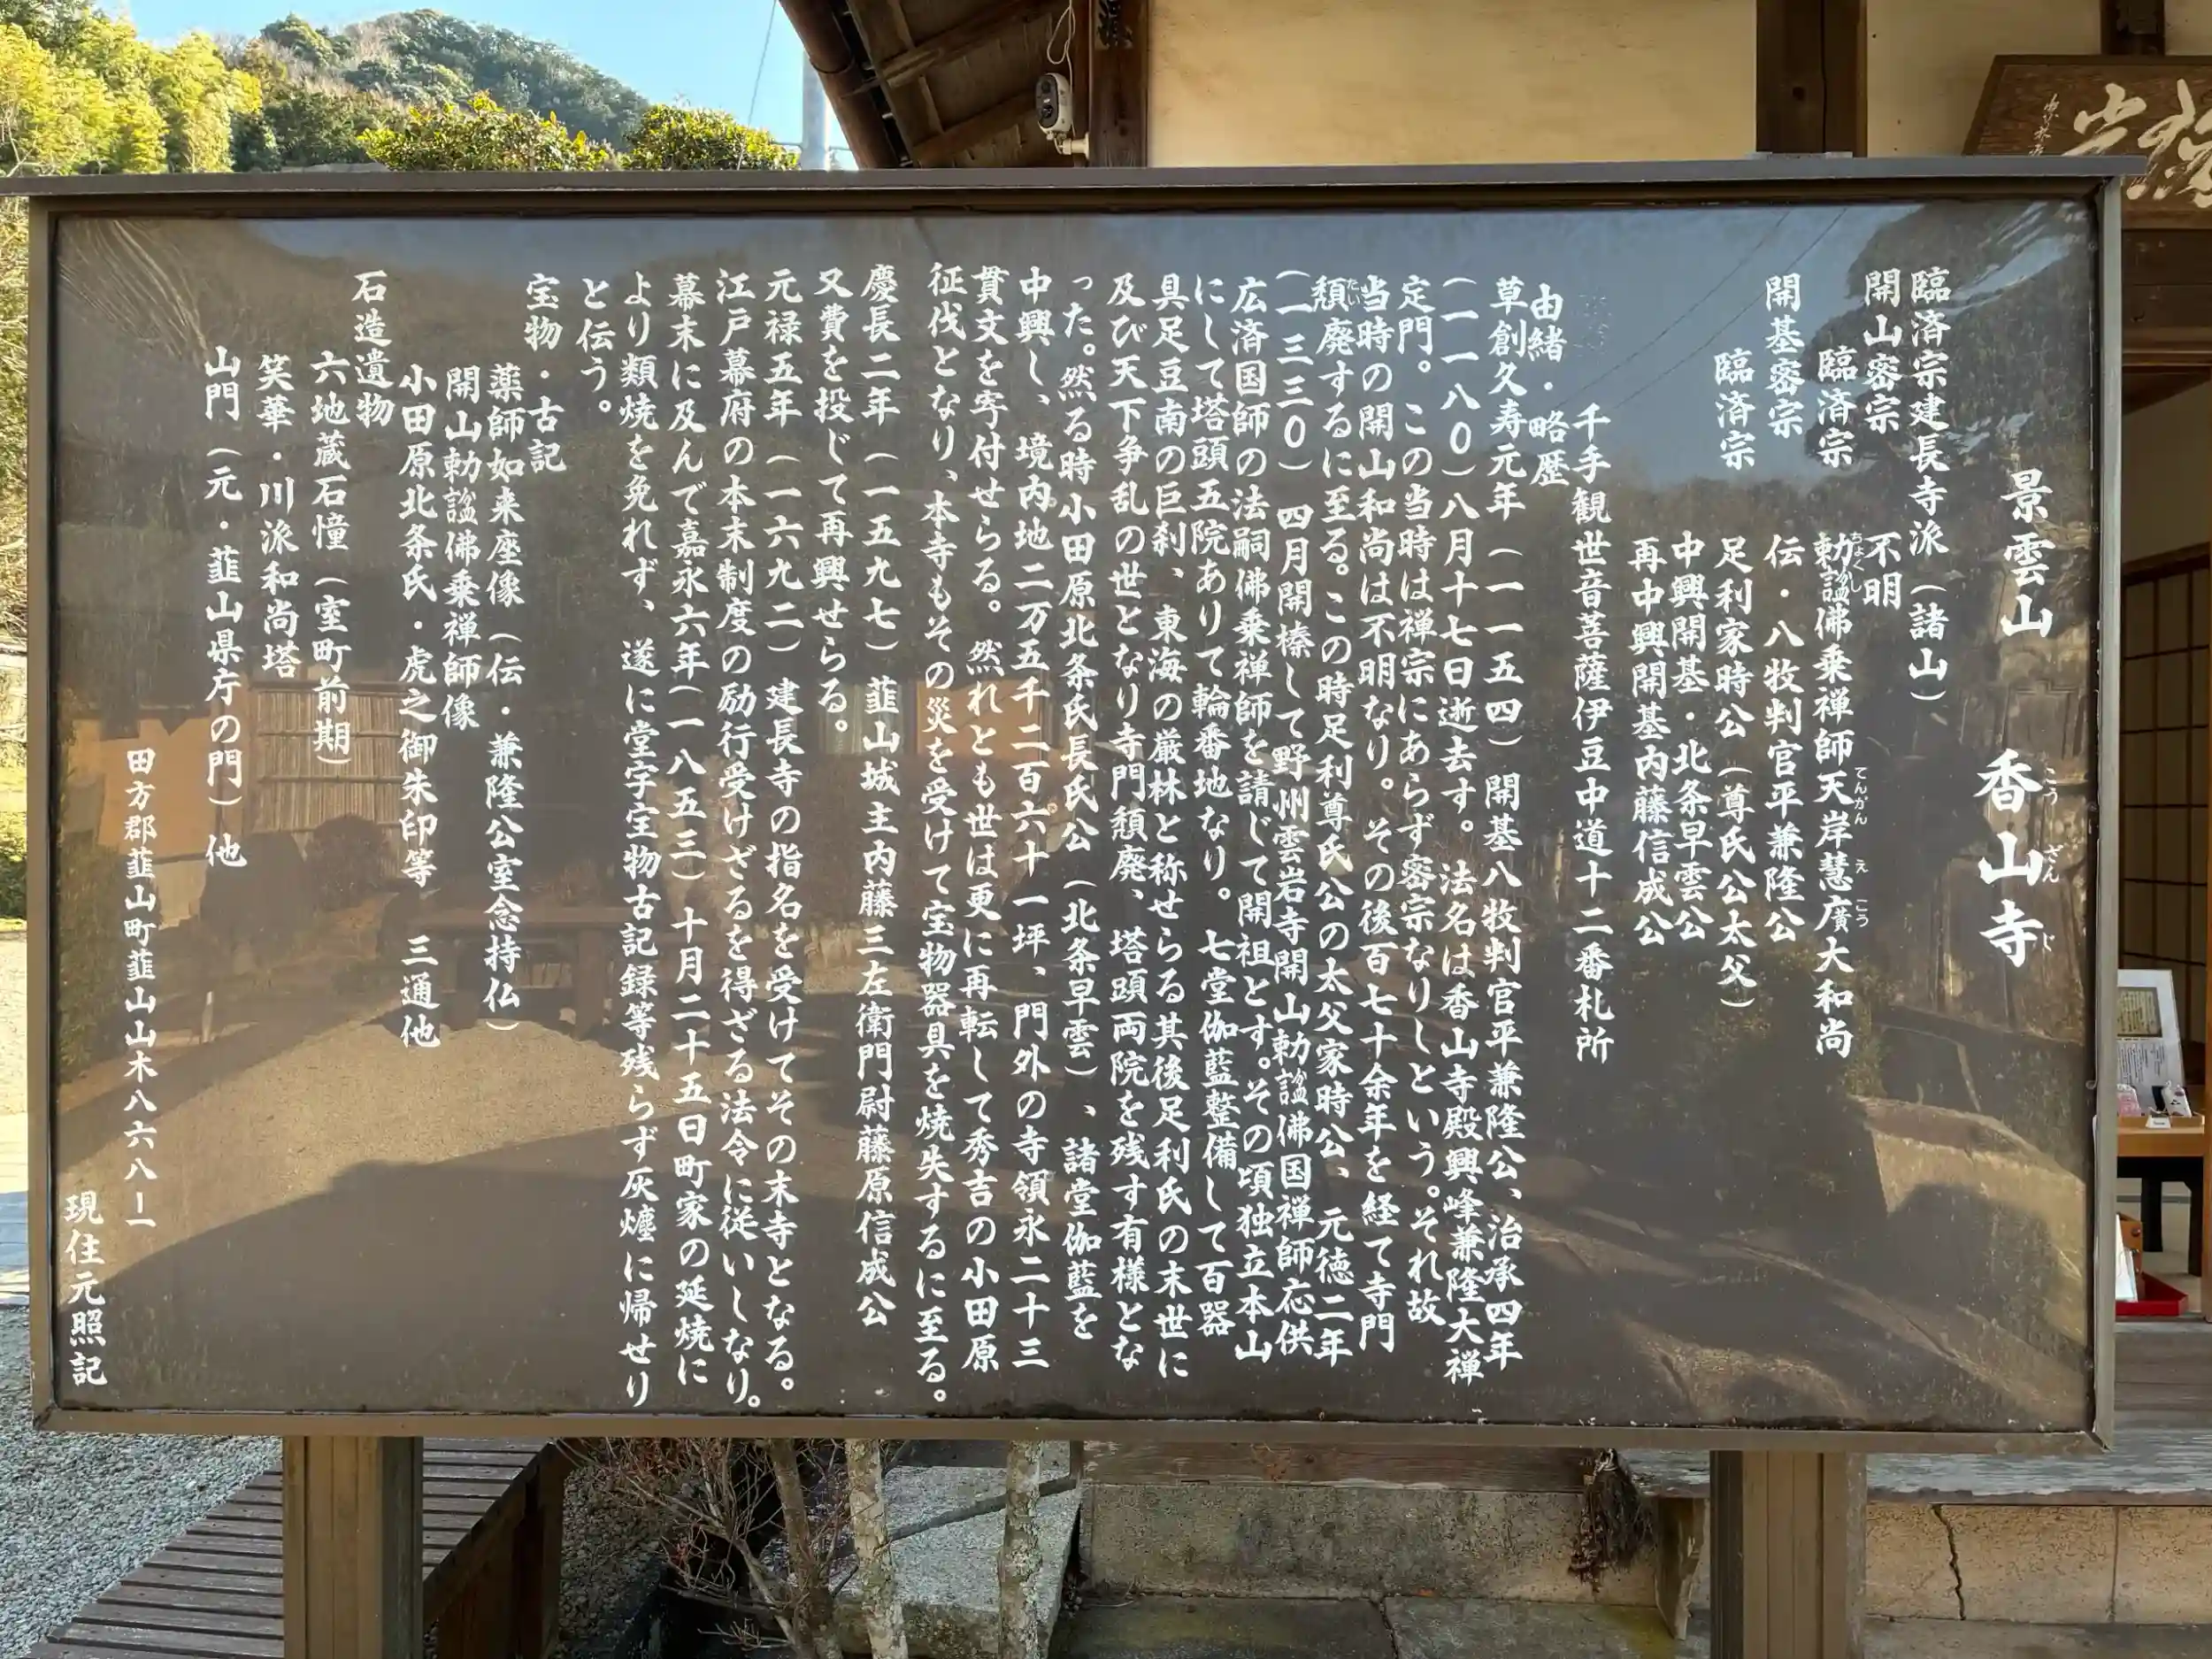 景雲山　香山寺
臨済宗建長寺派（諸山）
開山密宗　不明
臨済宗　勅諡佛乗禅師天岸慧廣大和尚
開基密宗　伝・八牧判官平兼隆公
臨済宗　足利家時公（尊氏公太父）
中興開基・北条早雲公
再中興開基内藤信成公
千手観世音菩薩伊豆中道十二番札所
由緒・略歴
草創久寿元年（一一五四）開基八牧判官平兼隆公、治承四年
（一一八〇）八月十七日逝去す。法名は香山寺殿興峰兼隆大禅
定門。この当時は禅宗にあらず密宗なりしという。それ故
当時の開山和尚は不明なり。その後百七十余年を経て寺門
頽廃するに至る。この時足利尊氏公の太父家時公、元徳二年
（一三三〇）四月開榛して野州雲岩寺開山勅諡佛国禅師応供
広済国師の法嗣佛乗禅師を請じて開祖とす。その頃独立本山
にして塔頭五院ありて輪番地なり。七堂伽藍整備して百器
具足豆南の巨刹、東海の厳林と称せらる其後足利氏の末世に
及び天下争乱の世となり寺門頽廃、塔頭両院を残す有様とな
った。然る時小田原北条氏長氏公（北条早雲）、諸堂伽藍を
中興し、境内地二万五千二百六十一坪、門外の寺領永二十三
貫文を寄付せらる。然れとも世は更に再転して秀吉の小田原
征伐となり、本寺もその災を受けて宝物器具を焼失するに至る。
慶長二年（一五九七）韮山城主内藤三左衛門尉藤原信成公
又費を投じて再興せらる。
元禄五年（一六九二）建長寺の指名を受けてその末寺となる。
江戸幕府の本末制度の励行受けざるを得ざる法令に従いしなり。
幕末に及んで嘉永六年（一八五三）十月二十五日町家の延焼に
より類焼を免れず、遂に堂宇宝物古記録等残らず灰燼に帰せり
と伝う。
宝物・古記
薬師如来座像（伝・兼隆公室念持仏）
開山勅諡佛乗禅師像
小田原北条氏・虎之御朱印等　三通他
石造遺物
六地蔵石憧（室町前期）
笑華・川派和尚塔
山門（元・韮山県庁の門）他
田方郡韮山町韮山山木八六八ー一
現住元照記